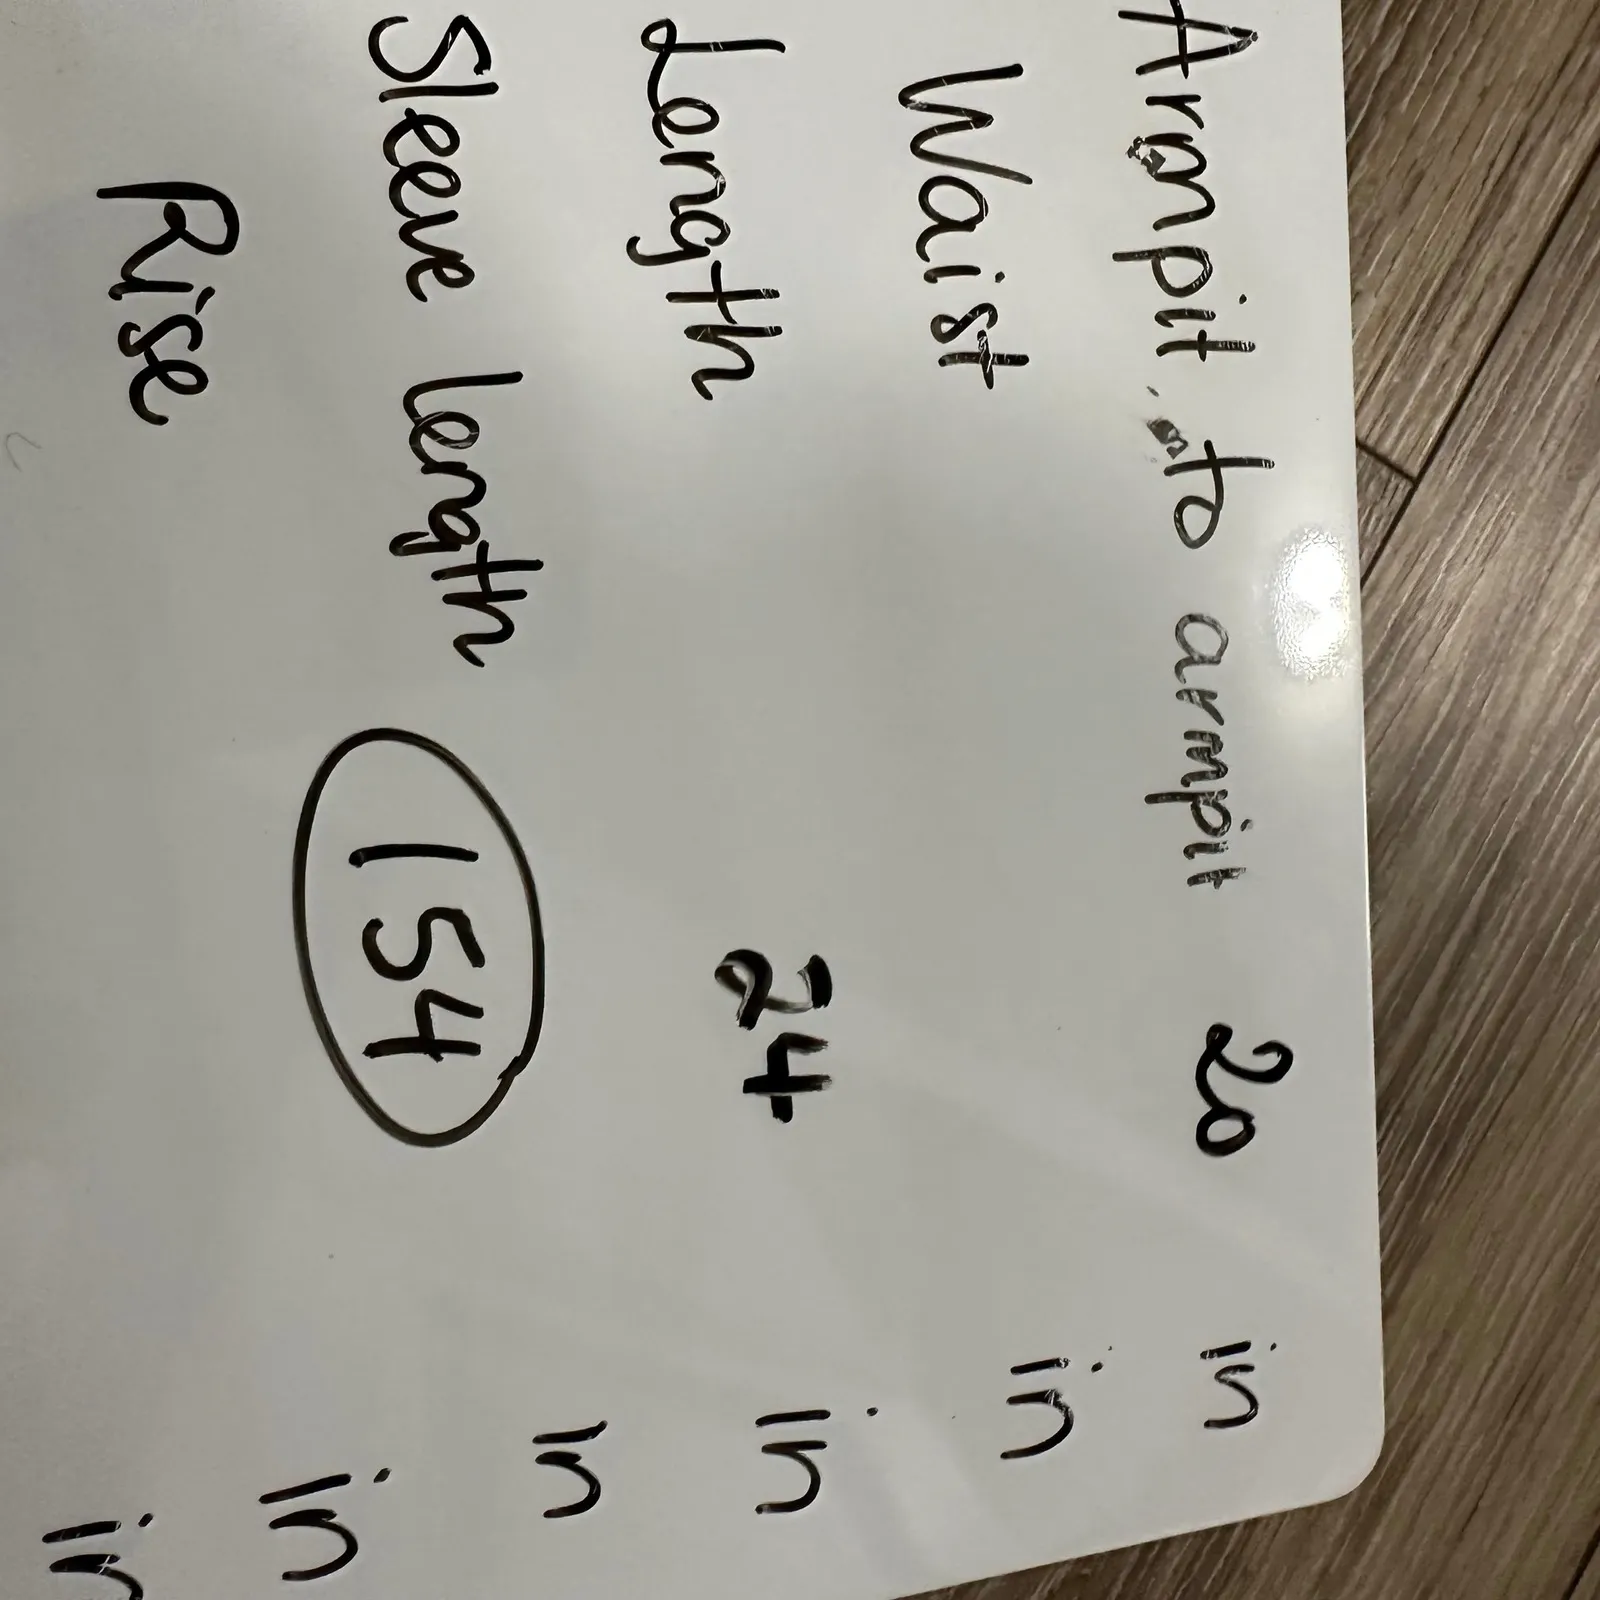 Armpit to armpit 20 in
Waist in
Length 24 in
Sleeve length in
154
Rise in
in